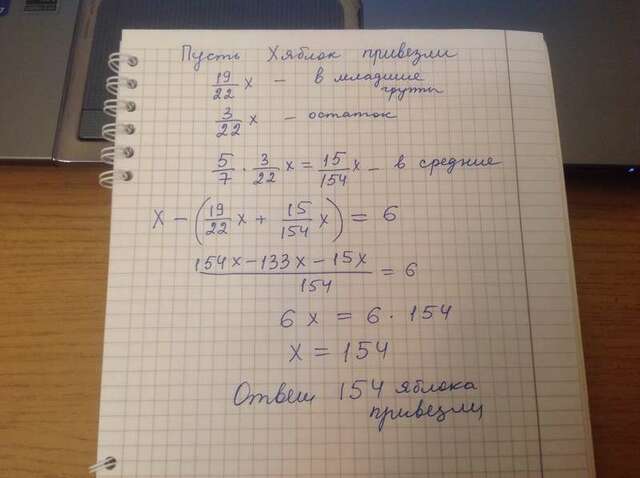 Пусть X яблок привезли
19/22 x – в младшие
группы
3/22 x – остаток
5/7 · 3/22 x = 15/154 x – в средние
X – (19/22 x + 15/154 x) = 6
154x – 133x – 15x / 154 = 6
6x = 6 · 154
x = 154
Ответ 154 яблока
привезли